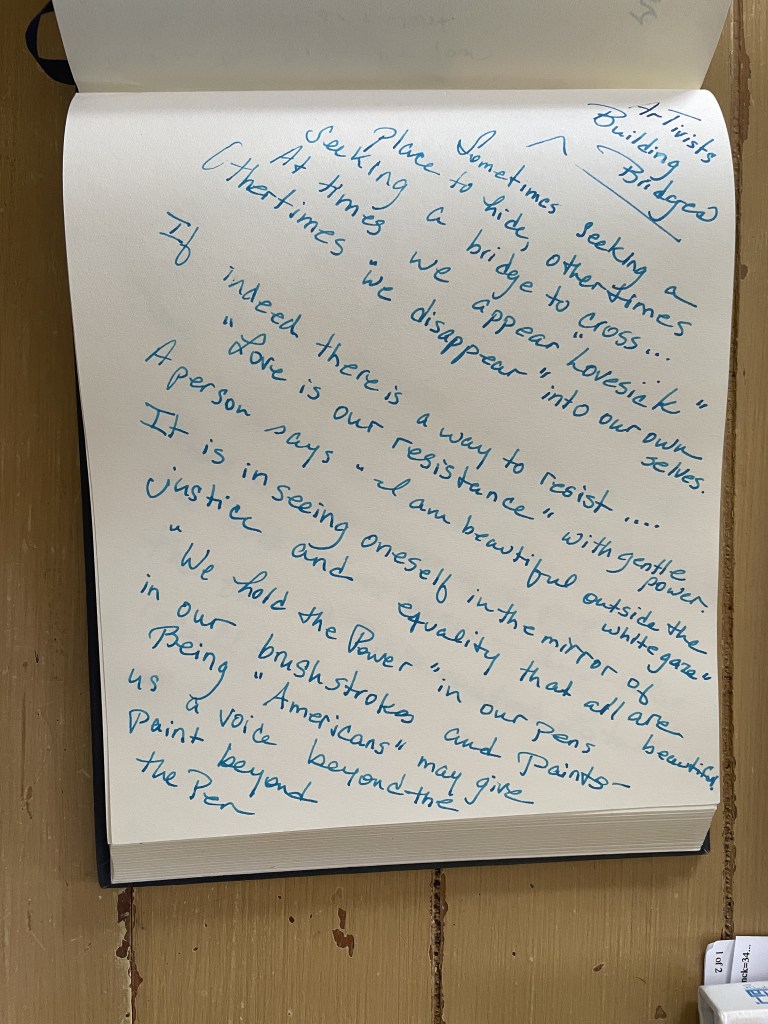 ArTivists
Building
Bridges
Sometimes seeking a
Place to hide, othertimes
Seeking a bridge to cross...
At times we appear "Lovesick"
Othertimes "we disappear" into our own
selves.
If indeed there is a way to resist ....
"Love is our resistance" with gentle
power.
A person says "I am beautiful outside the
white gaze"
It is in seeing oneself in the mirror of
justice and equality that all are
beautiful,
"We hold the Power" in our Pens
in our brushstrokes and Paints-
Being "Americans" may give
us a voice beyond the
Paint beyond
the Pen
1 of 2
ack=34...